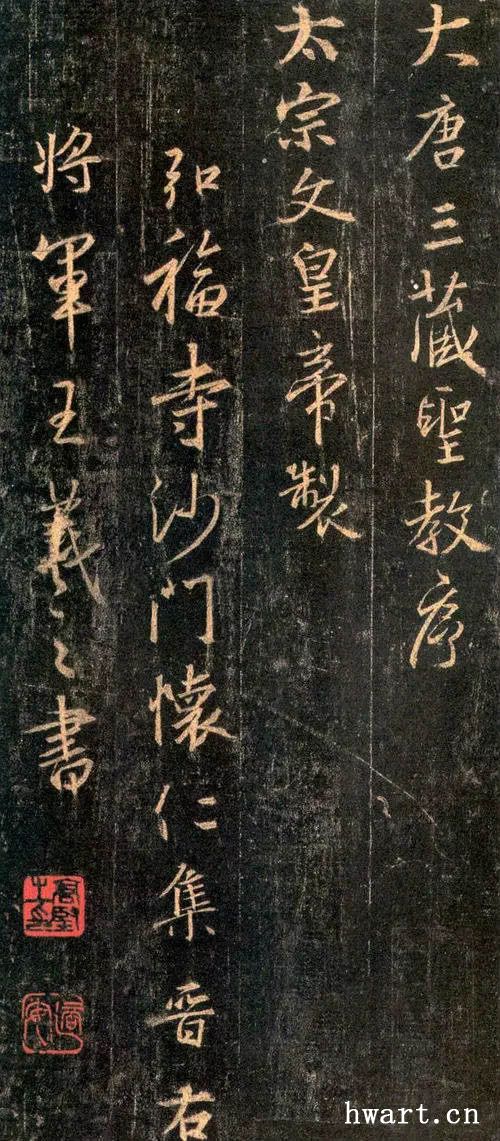 大唐三藏聖教序
太宗文皇帝製
弘福寺沙門懷仁集晋右
將軍王羲之書
hwart.cn